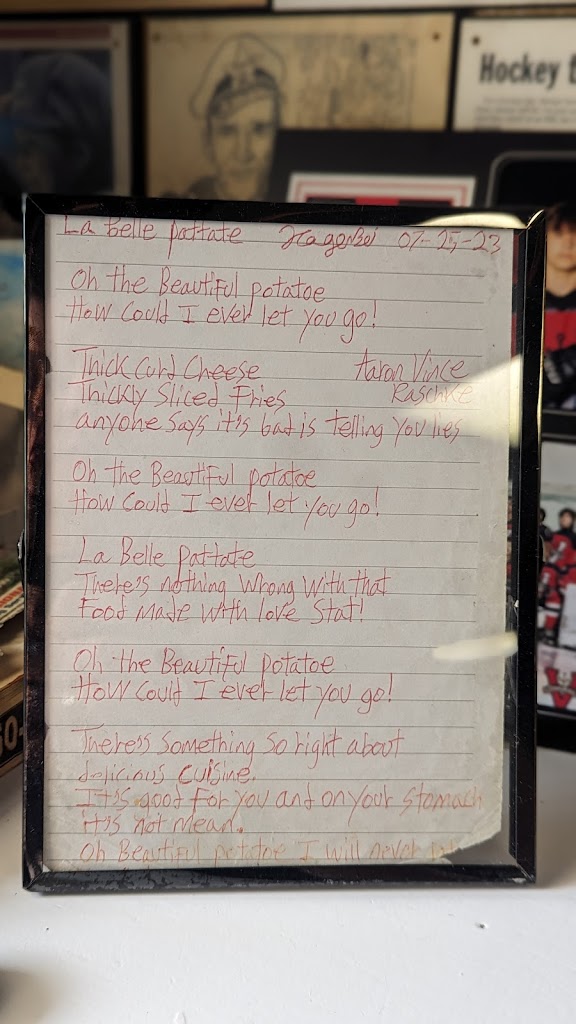 Hockey
La Belle pattate 07-25-23
Oh the Beautiful potatoe
How Could I ever let you go!
Thick Curd Cheese Aaron Vince
Thickly Sliced Fries Raschke
anyone says it's bad is telling you lies
Oh the Beautiful potatoe
How Could I ever let you go!
La Belle pattate
There's nothing Wrong With that
Food Made With love Stat!
Oh the Beautiful potatoe
How Could I ever let you go!
There's Something So right about
delicious Cuisine.
It's good For you and on your Stomach
it's not Mean.
Oh Beautiful potatoe I will never